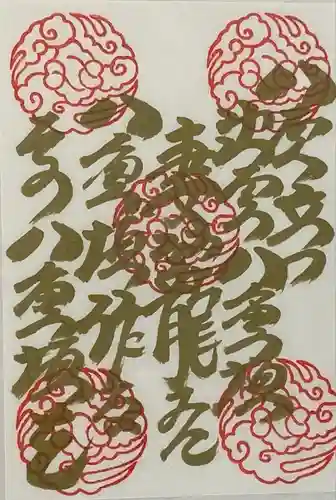 八雲立つ
出雲八重垣
妻籠みに
八重垣作る
その八重垣を